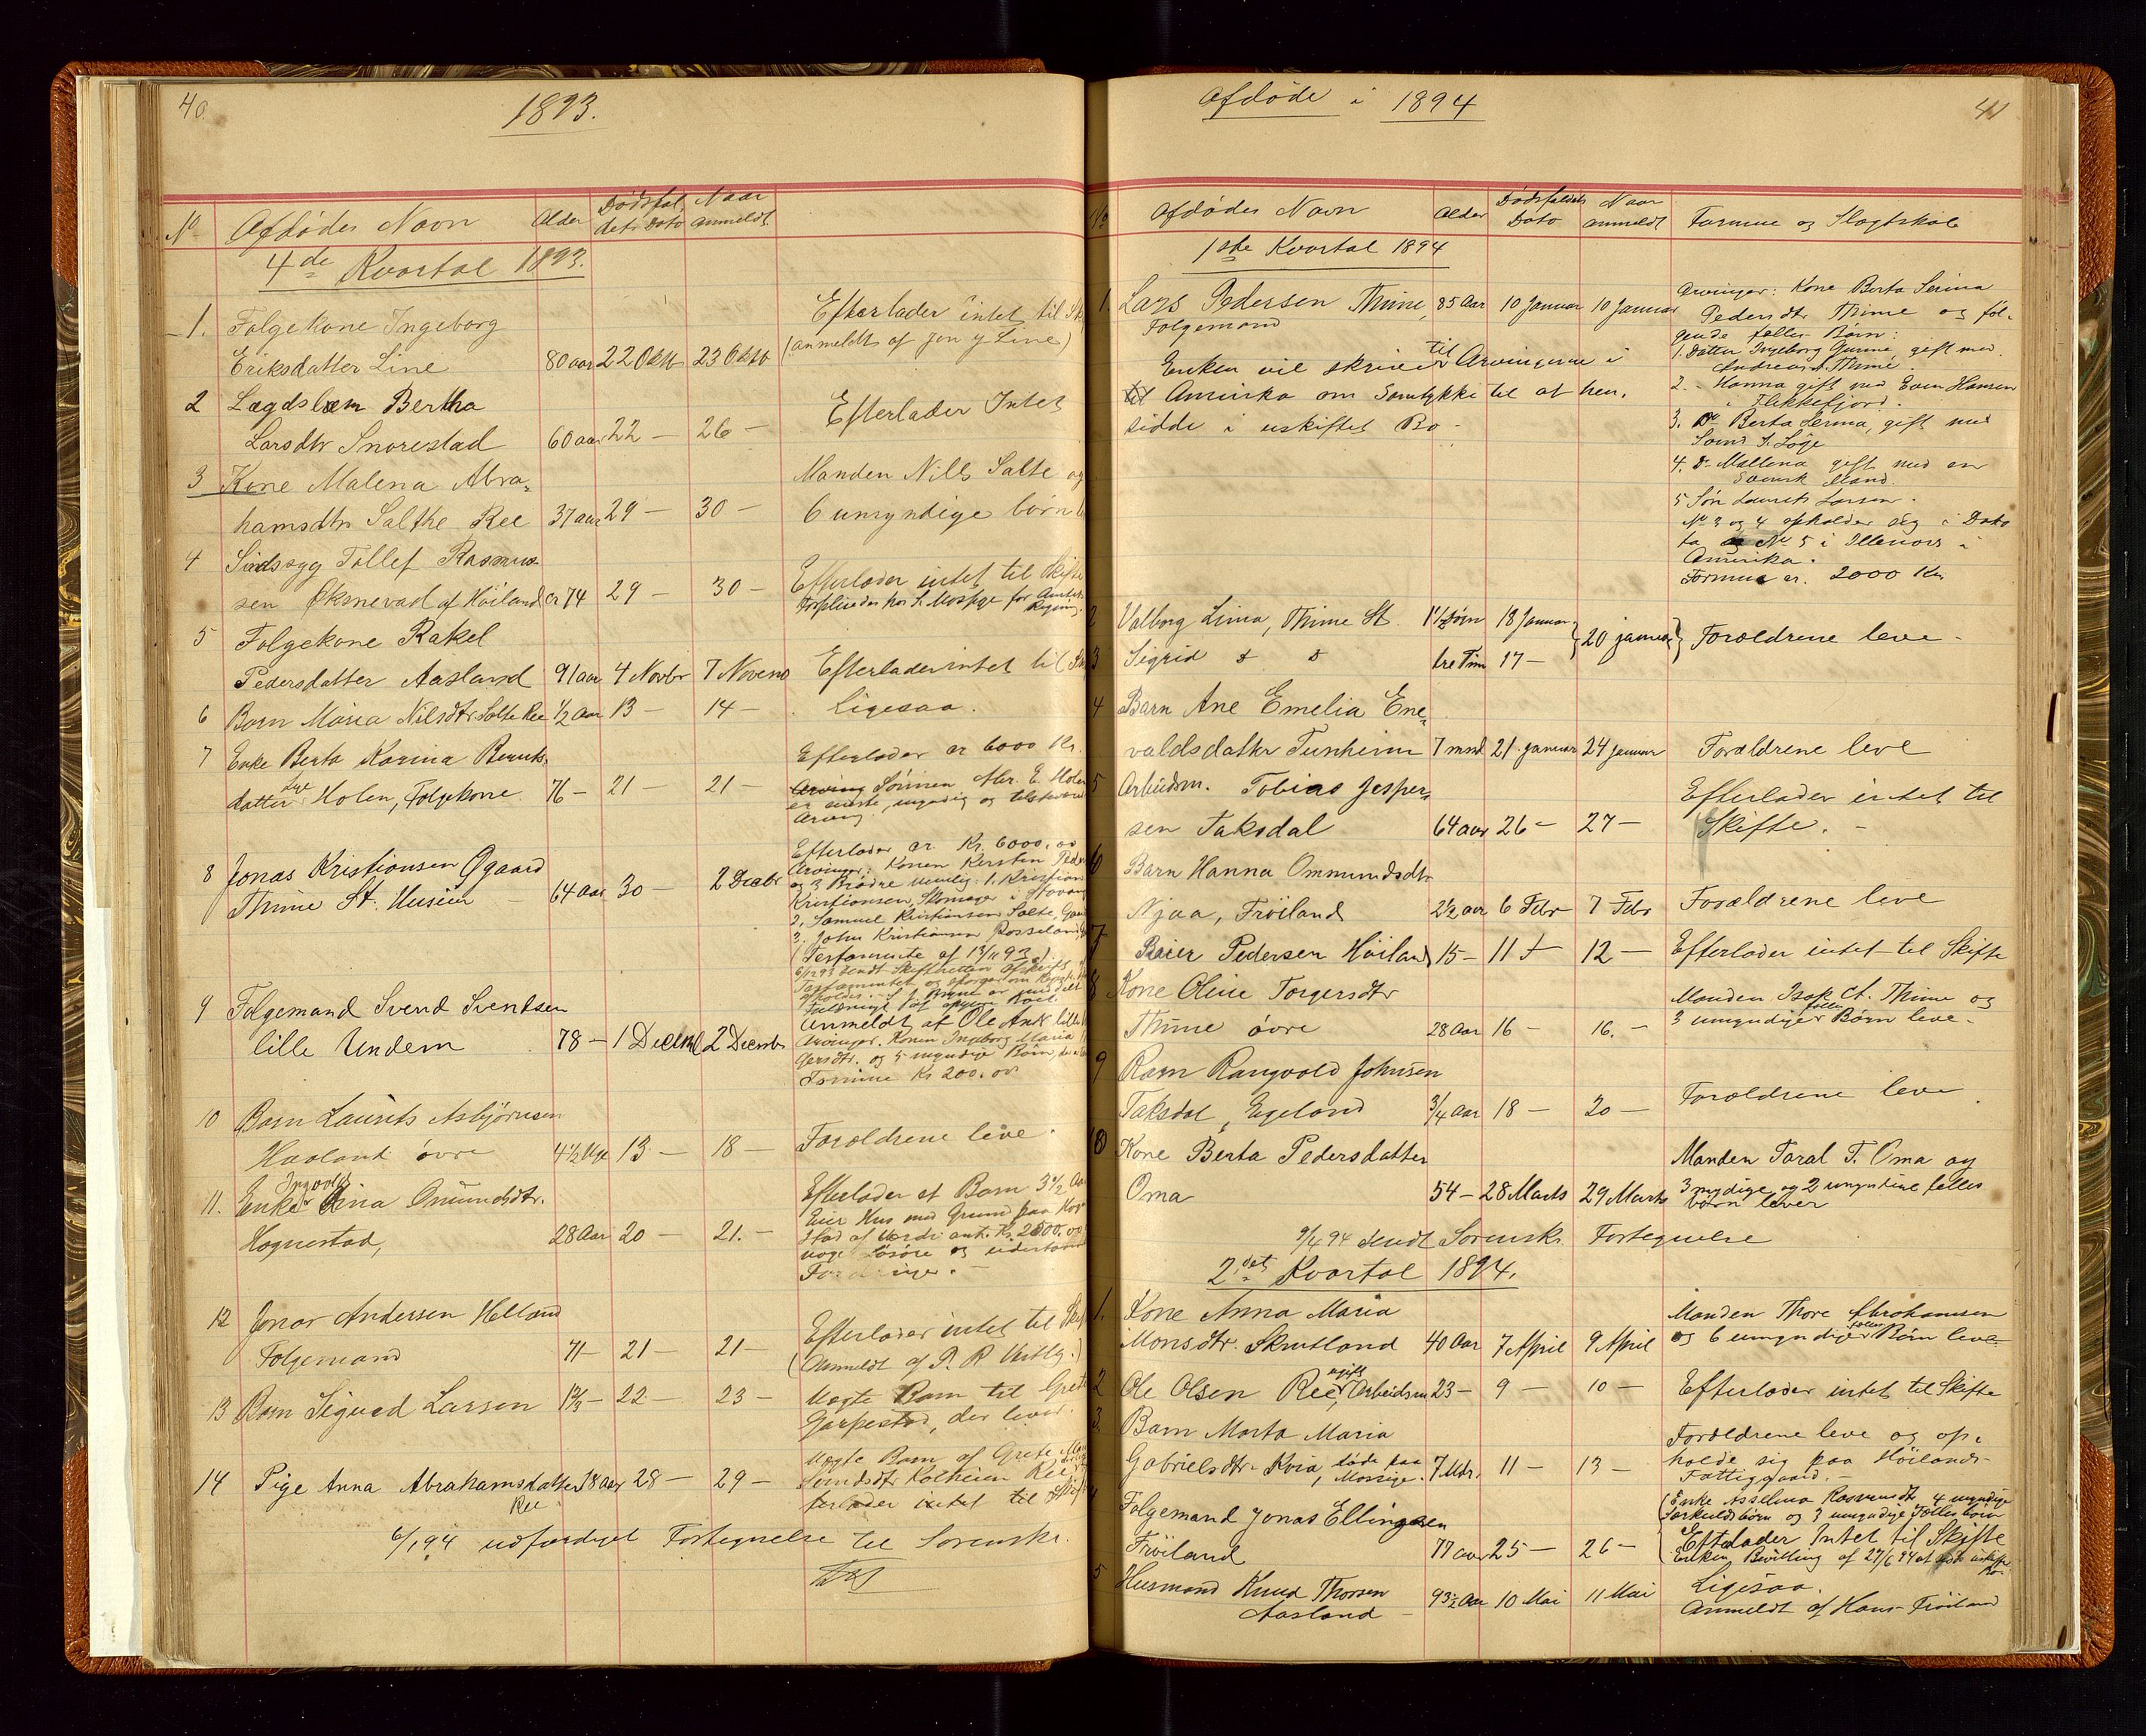 40.
1893.
No Afdødes Navn Alder Dødsfaldets Dato Naar anmeldt
4de Kvartal 1893.
1. Folgekone Ingeborg
Eriksdatter Line 80 aar 22 Oktb 23 Oktb
Efterlader intet til
(anmeldt af Jon Line)
2 Lægdslem Bertha
Larsdtr Snorestad 60 aar 22 — 26 —
Efterlader Intet
3 Kone Malena Abra-
hamsdtr Salthe Ree 37 aar 29 — 30 —
Manden Nils Salte og
6 umyndige børn
4 Sindssyg Tollef Rasmus-
sen Øksnevad af Höiland er 74 29 — 30 —
Efterlader intet til Skifte
Forpleiedes hos S. Mossige for Amtets
Regning.
5 Folgekone Rakel
Pedersdatter Aasland 91 aar 4 Novbr 7 Novemb
Efterlader intet til
6 Barn Maria Nilsdtr Salte Ree 1/2 aar 13 — 14 —
Ligesaa.
7 Enke Berta Karina Berents-
datter Lye Holen, Folgekone 76 — 21 — 21 —
Efterlader ca 6000 Kr.
Arving Sönnen Abr. E. Holen
er eneste, myndig og tilstedeværende
Arving.
8 Jonas Kristiansen Øgaard
Thime St. 64 Aar 30 — 2 Decbr
Efterlader ca. Kr. 6000.00
Arvinger: Konen Kersten Peder
og 3 Brødre nemlig: 1. Kristian
Kristiansen, Skomager i Stavang
2, Samuel Kristiansen Salte,
3. John Kristiansen Rosseland
(Testamente af 13/11 93).
6/12 93 sendt Skifteretten Afskrift
Testamentet og
9 Folgemand Svend Svendsen
lille Undem 78 — 1 Decemb 2 Decemb
Anmeldt af Ole Ank lille
Arvinger. Konen Ingeborg Maria
gersdtr. og 5 myndige Børn
Formue Kr 200.00
10 Barn Laurits Asbjörnsen
Haaland övre 4 1/2 Uge 13 — 18 —
Forældrene leve.
11. Enke Ingvolds Lina Omundsdtr.
Hognestad, 28 Aar 20 — 21. —
Efterlader et Barn 3 1/2 Aar
Eier Hus med Grund paa Hog
stad af Værdi ant. Kr. 2000.00
noget Løsöre og udestaaende
Fordringer. —
12 Jonas Andersen Helland
Folgemand 71 — 21 — 21 —
Efterlader intet til
(Anmeldt af P. R. Vestly.)
13 Barn Sigurd Larsen 22 — 23 —
Uægte Barn til Grete
Garpestad, der lever.
14 Pige Anna Abrahamsdatter 18 aar 28 — 29 —
Ree
Uægte Barn af Grete
Svendsdtr Kolheim Ree
terlader intet til
6/1 94 udfærdiget Fortegnelse til Sorenskr.
Afdøde i 1894
41
No Afdødes Navn Alder Dødsfaldets Dato Naar anmeldt Formue og Slægtskab
1ste Kvartal 1894
1. Lars Pedersen Thime, 85 Aar 10 Januar 10 Januar
Folgemand
Enken vil skrive til Arvingerne i
Amerika om Samtykke til at hen-
sidde i uskiftet Bo -
Arvinger: Kone Berta Serina
Pedersdtr Thime og föl-
gende fælles Børn:
1. Datter Ingeborg Gurine, gift med
Andreas A. Thime.
2. " Hanna gift med Even Hansen
i Flekkefjord.
3. Do Berta Serina, gift med
Svend S. Lÿge
4. Do Mallena gift med en
Svensk Mand.
5 Søn Laurits Larsen.
No 3 og 4 opholder sig i Dako
ta No 5 i Illenois i
Amerika.
Formue er. 2000 Kr.
2 Valborg Lima, Thime St 1 1/2 Døgn 18 Januar
3 Sigrid do do tre Tim 17 — 20 januar Forældrene leve -
4 Barn Ane Emelia Ene-
valdsdatter Tunheim 7 mnd 21. januar 24 januar Forældrene leve
5 Arbeidsm. Tobias Jesper-
sen Taksdal 64 aar 26 — 27 —
Efterlader intet til
Skifte. —
6 Barn Hanna Ommundsdtr
Njaa, Fröiland 2 1/2 aar 6 Febr 7 Febr Forældrene leve
7 Reier Pedersen Höiland 15 — 11 — 12 — Efterlader intet til Skifte
8 Kone Oline Torgersdtr
Thime övre 28 Aar 16 — 16. —
Manden Isak A. Thime og
3 umyndige fælles Børn leve.
9 Barn Rangvald Johnsen
Taksdal, Egeland 3/4 Aar 18 — 20 — Forældrene leve
10 Kone Berta Pedersdatter
Oma 54 — 28 Marts 29 Marts
Manden Taral T. Oma og
3 mydige og 2 umyndige fælles
børn lever
9/4 94 sendt Sorenskr. Fortegnelse
2det Kvartal 1894.
1. Kone Anna Maria
Monsdtr. Skrutland 40 Aar 7 April 9 April
Manden Thore Abrahamsen
og 6 umyndige fælles Børn leve
2 Ole Olsen Ree, ugift Arbeidsm 23 — 9 — 10 — Efterlader intet til Skifte
3. Barn Marta Maria
Gabrielsdtr. Kvia, døde paa Mossige. 7 Mdr. 11 — 13 —
Forældrene leve og op-
holde sig paa Höilands-
Fattiggaard. —
4 Folgemand Jonas Ellingsen
Fröiland 77 aar 25 — 26 —
(Enke Asselina Rasmusdt 4 myndige
Særkuldsbørn og 3 umyndige Fællesbörn
Efterlader Intet til Skifte
Enken Bevilling af 27/6 94 at uskiftet
Bo.
5 Husmand Knud Thorsen
Aasland — 93 1/2 Aar 10 Mai 11 Mai
Ligesaa.
Anmeldt af Hans Fröiland